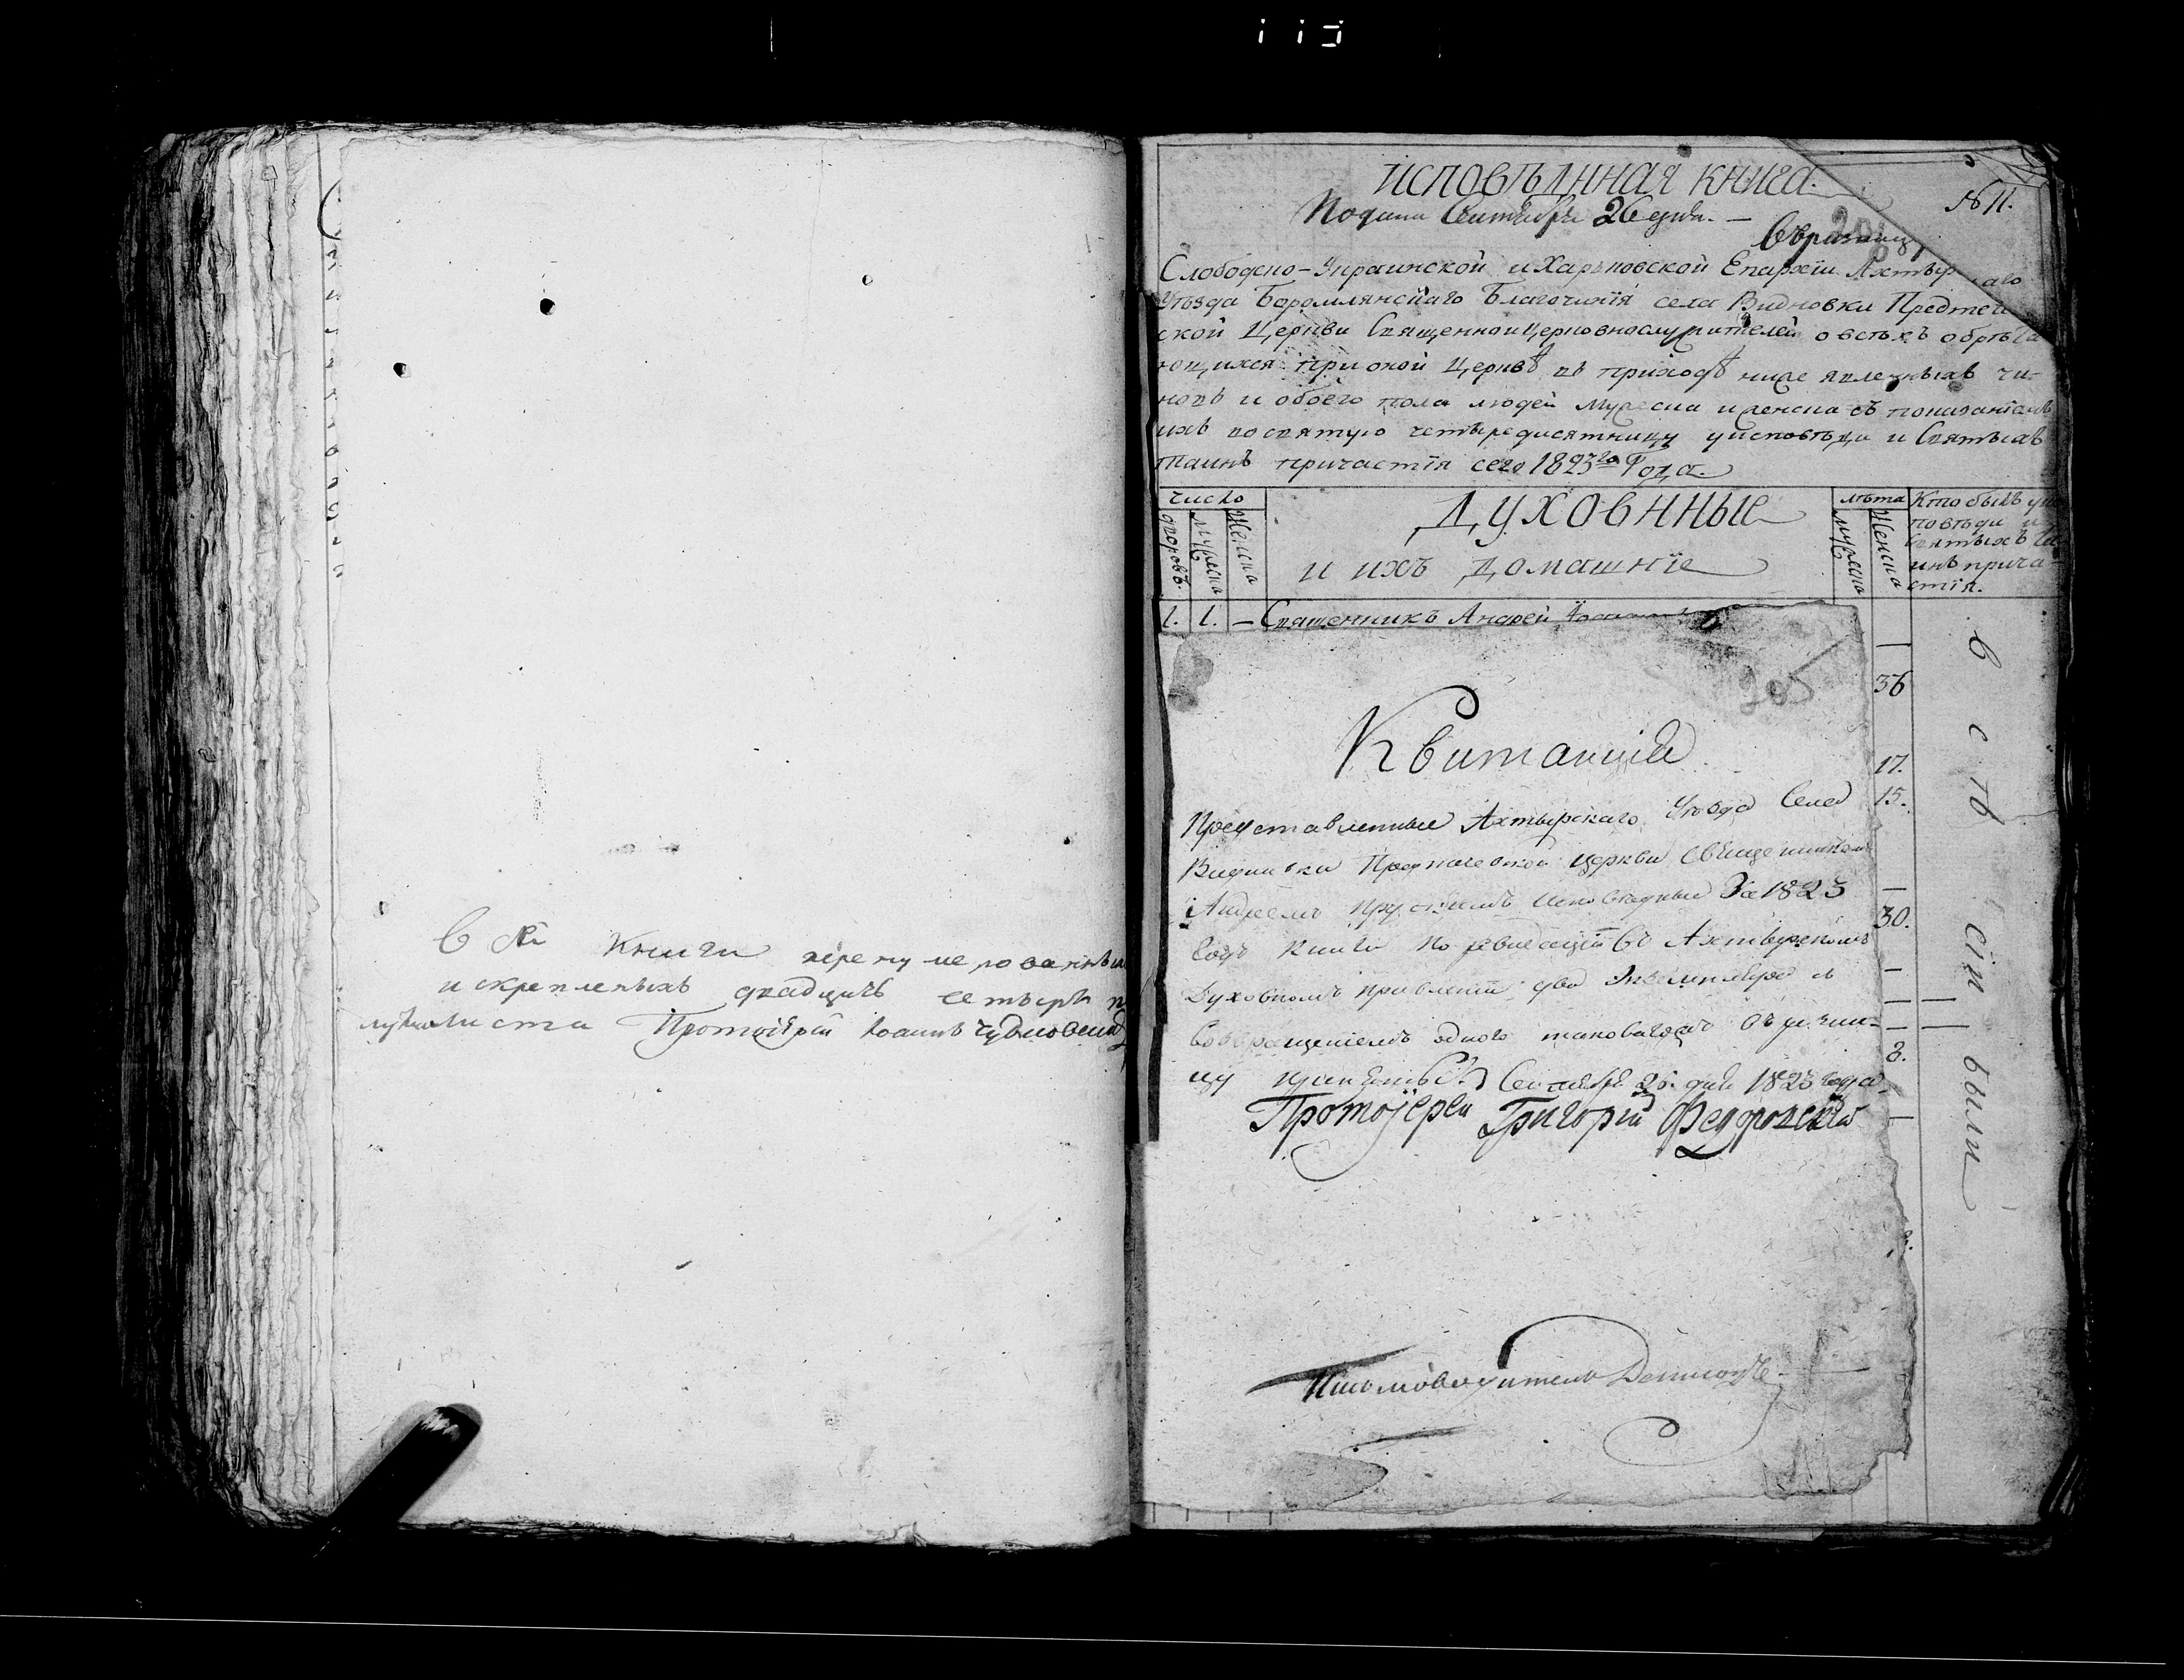 Въ сей книги перенумерованныхъ
и скрепленыхъ двадцать четыре
листа Протоіерей Іоаннъ
ИСПОВѢДННАЯ КНИГА.
№ 11.
Подана Сентября 26 дня. —
Въ ризницу
205
Слободско-Украинской и Харьковской Епархіи Ахтыр
аго
Уѣзда Боромлянскаго Благочинія села Видновки Предтечи
ской Церкви Священноицерковнослужителей о всѣхъ обрѣта
ющихся при оной Церквѣ въ приходѣ ниже явленныхъ чи-
новъ и обоего пола людей мужеска и женска съ показаніемъ
ихъ во святую четыредисятницу у исповѣди и Святыхъ
таинъ причастія сего 1823го Года.
число
дворовъ.
мужеска
Женска
ДУХОВННЫЕ
и ихъ домашніе
лѣта
мужеска
Женска
Кто былъ у ис
повѣди и
Святыхъ та
инъ прича-
стія.
1. 1. — Священникъ Андрей
36
17.
15.
—
30.
—
—
—
8.
—
в с ѣ сіи были
205
Квитанція
Представленные Ахтырскаго Уѣзда Села
Видновки Предтечевской церкви Священникомъ
Андреемъ исповѣдныя За 1823
годъ книги по ревизіи въ Ахтырскомъ
Духовномъ Правленіи два Экземпляра съ
Возвращеніемъ одного таковаго въ ризни-
цу приняты Сентября 26. дня 1823 года.
Протоіерей Григорій Федоровскій
Письмоводитель